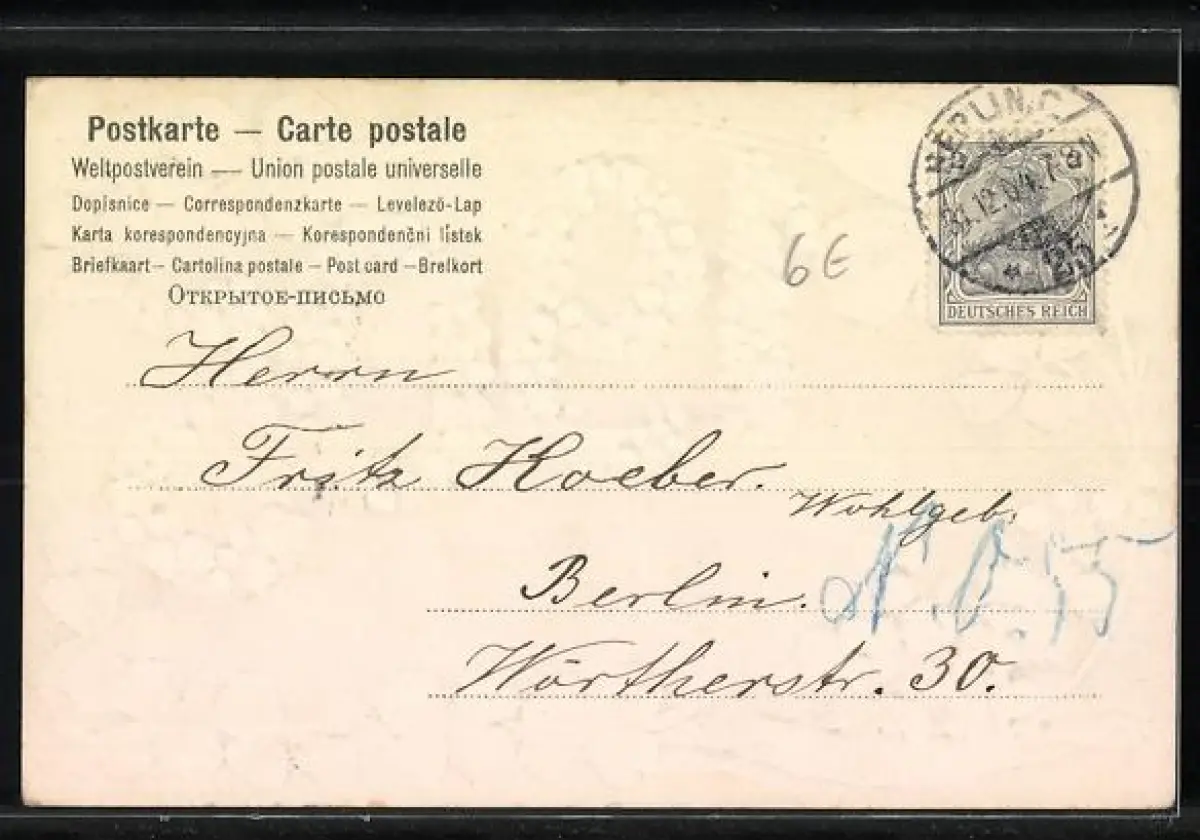 Postkarte — Carte postale
Weltpostverein — Union postale universelle
Dopisnice — Correspondenzkarte — Levelező-Lap
Karta korespondencyjna — Korespondenčni listek
Briefkaart — Cartolina postale — Post card — Brefkort
Открытое-письмо
BERLIN, C
31.12.04. 7-8N
* 25
DEUTSCHES REICH
6E
Herrn
Fritz Hoeber.
Wohlgeb.
Berlin.
Wörtherstr. 30.